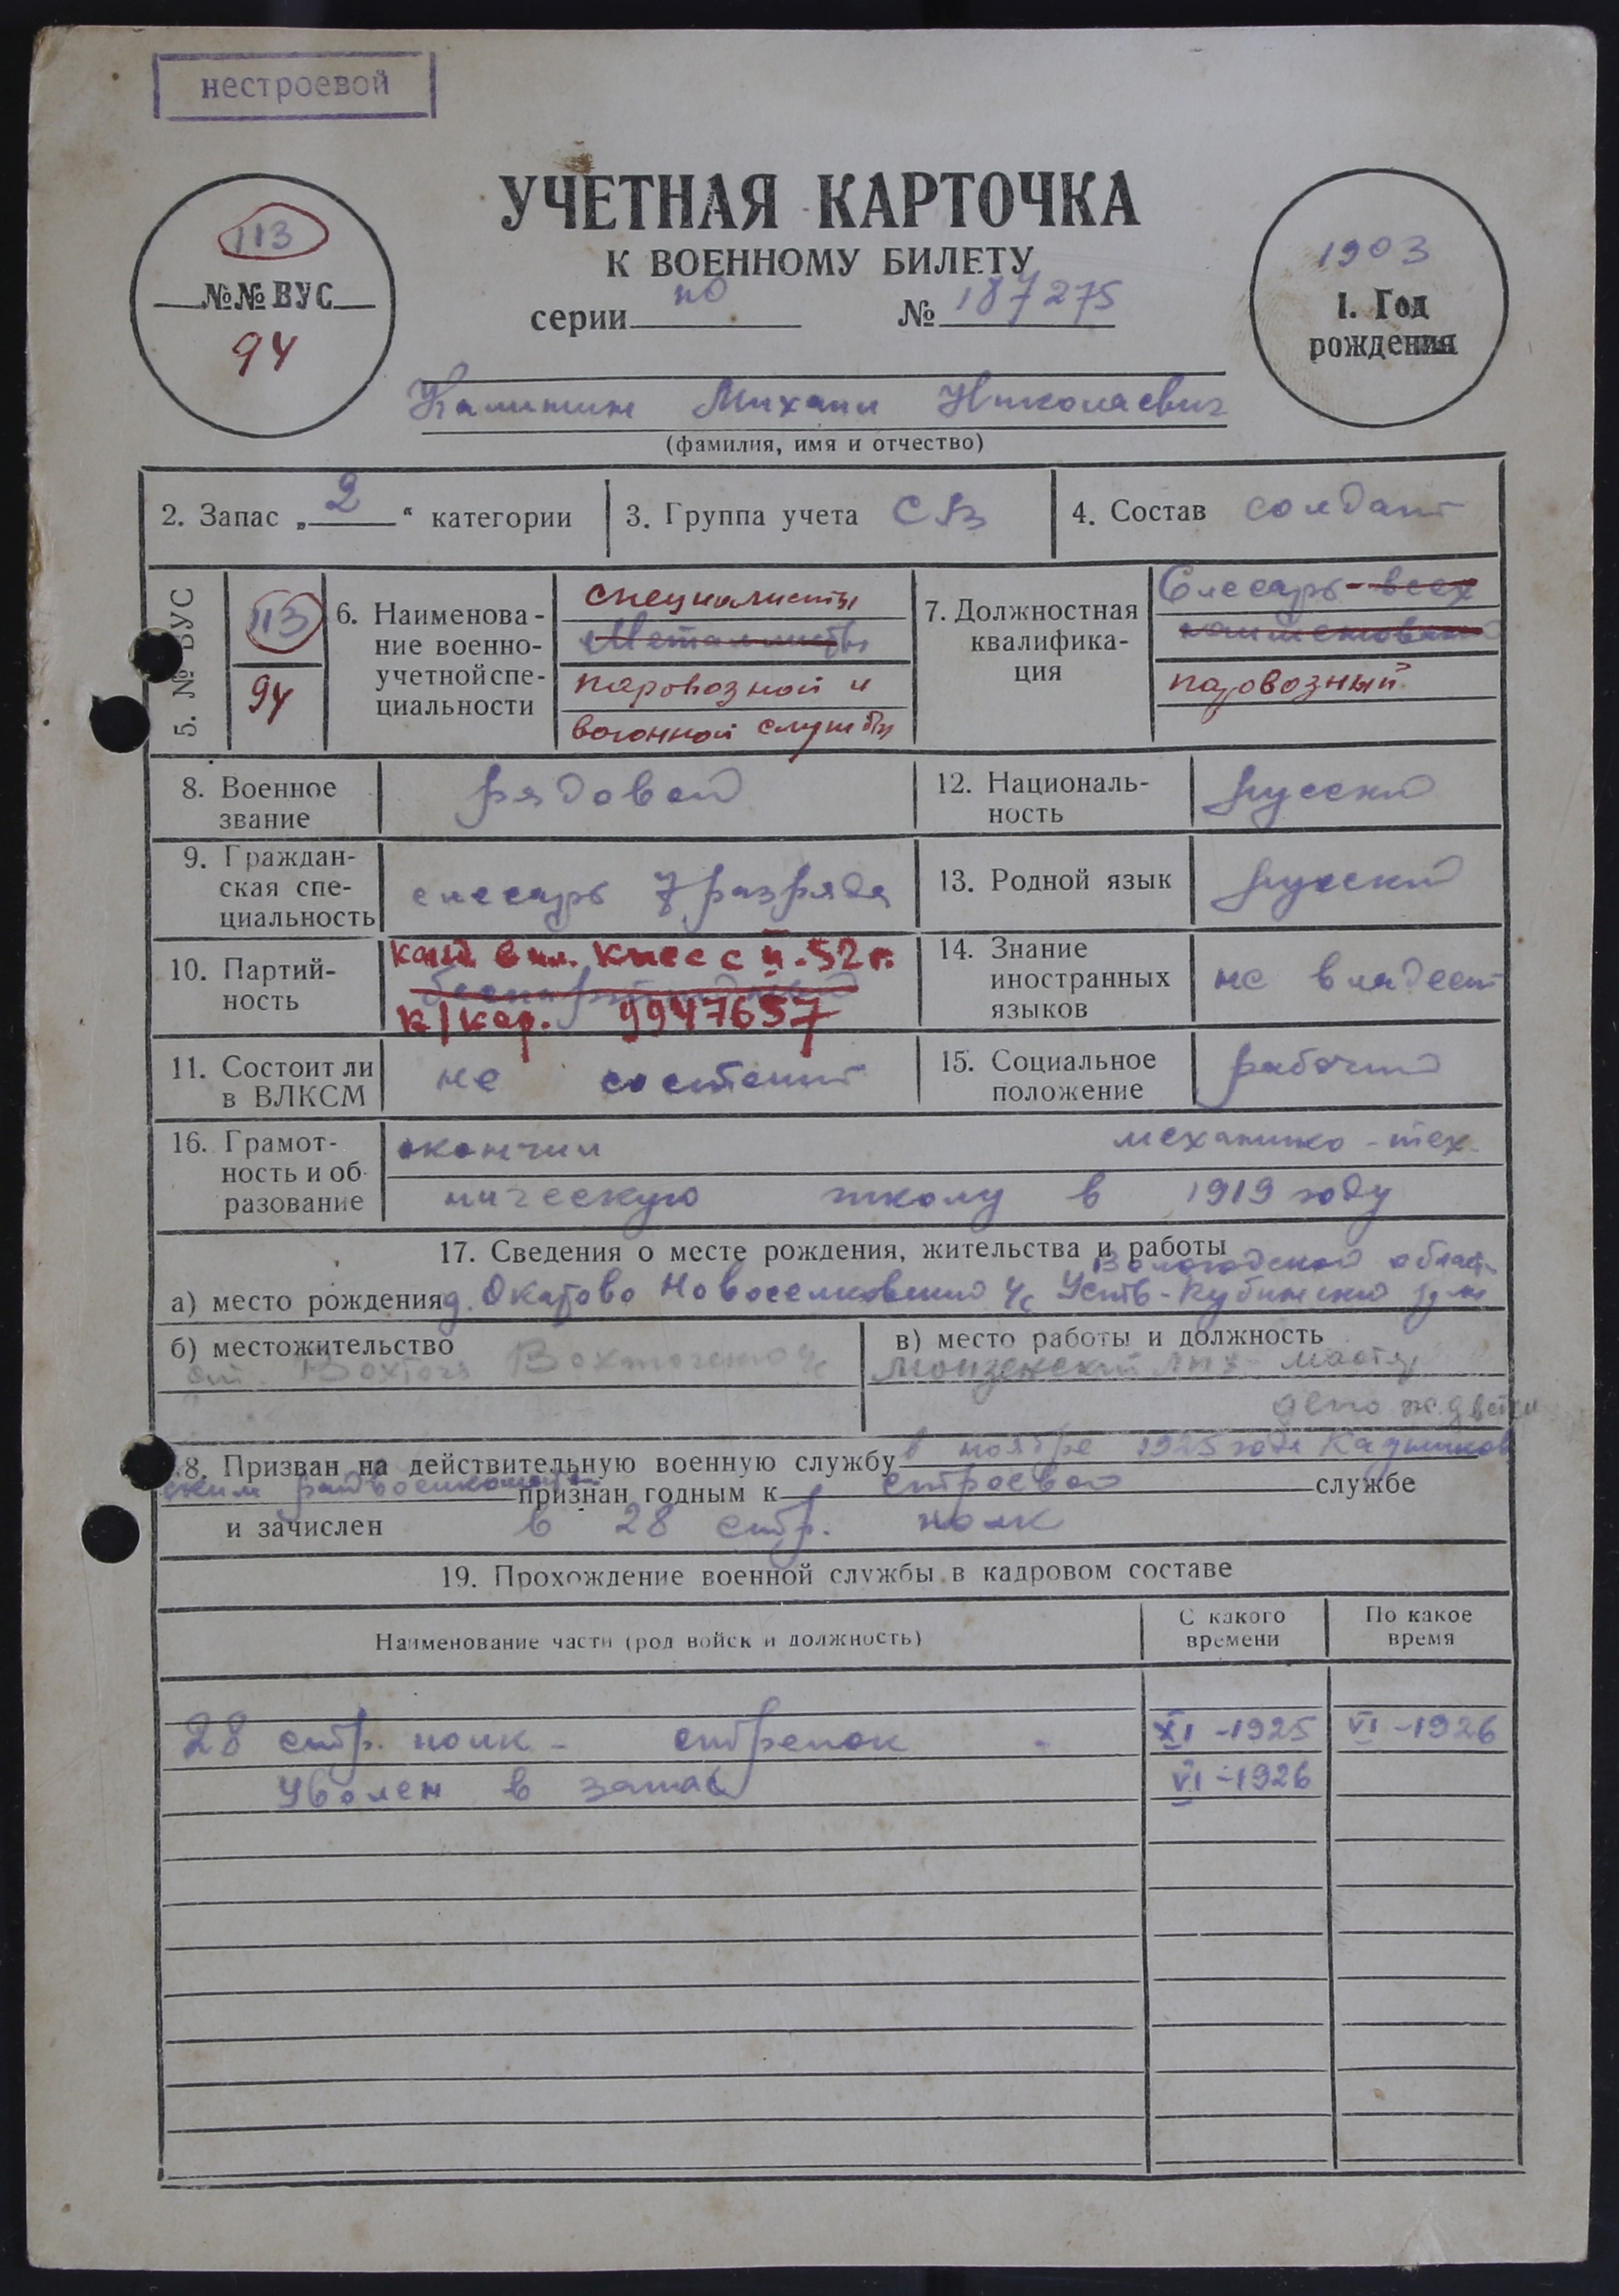 нестроевой
УЧЕТНАЯ КАРТОЧКА
К ВОЕННОМУ БИЛЕТУ
серии пО № 187275
113
№№ ВУС
94
1903
1. Год
рождения
Калинин Михаил Николаевич
(фамилия, имя и отчество)
2. Запас „2“ категории
3. Группа учета СВ
4. Состав солдат
5. № ВУС
113
94
6. Наименова-
ние военно-
учетной спе-
циальности
специалисты
Металлисты
паровозной и
вагонной службы
7. Должностная
квалифика-
ция
Слесарь - всех
наименований
паровозный
8. Военное
звание
рядовой
12. Националь-
ность
русский
9. Граждан-
ская спе-
циальность
слесарь 7 разряда
13. Родной язык
русский
10. Партий-
ность
канд. в чл. КПСС с 52 г.
беспартийный
к/кар. 9947657
14. Знание
иностранных
языков
не владеет
11. Состоит ли
в ВЛКСМ
не состоит
15. Социальное
положение
рабочий
16. Грамот-
ность и об-
разование
окончил механико-тех-
ническую школу в 1919 году
17. Сведения о месте рождения, жительства и работы
Вологодской област.
а) место рождения д. Окатово Новоселковский с/с Усть-Кубинский
б) местожительство
Вохтога Вохтожского с/с
в) место работы и должность
Монзенский мастер
депо ж.д ветки
18. Призван на действительную военную службу в ноябре 1925 года Кадников
ским райвоенкоматом признан годным к строевой службе
и зачислен в 28 стр. полк
19. Прохождение военной службы в кадровом составе
Наименование части (род войск и должность)
С какого
времени
По какое
время
28 стр. полк - стрелок XI -1925 VI -1926
Уволен в запас VI -1926